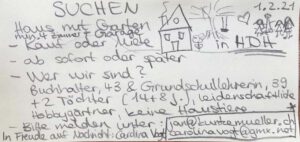 SUCHEN
1.2.21
Haus mit Garten
min. 4 Zimmer + Garage
in HDH
- Kauf oder Miete
- ab sofort oder später
- Wer wir sind?
Buchhalter, 43 & Grundschullehrerin, 39
+ 2 Töchter (14+8J.), leidenschaftliche
Hobbygärtner, keine Haustiere
- Bitte melden unter:
jan@kuntzemueller.ch
carolina.vogt@gmx.net
In Freude auf Nachricht: Carolina Vogt